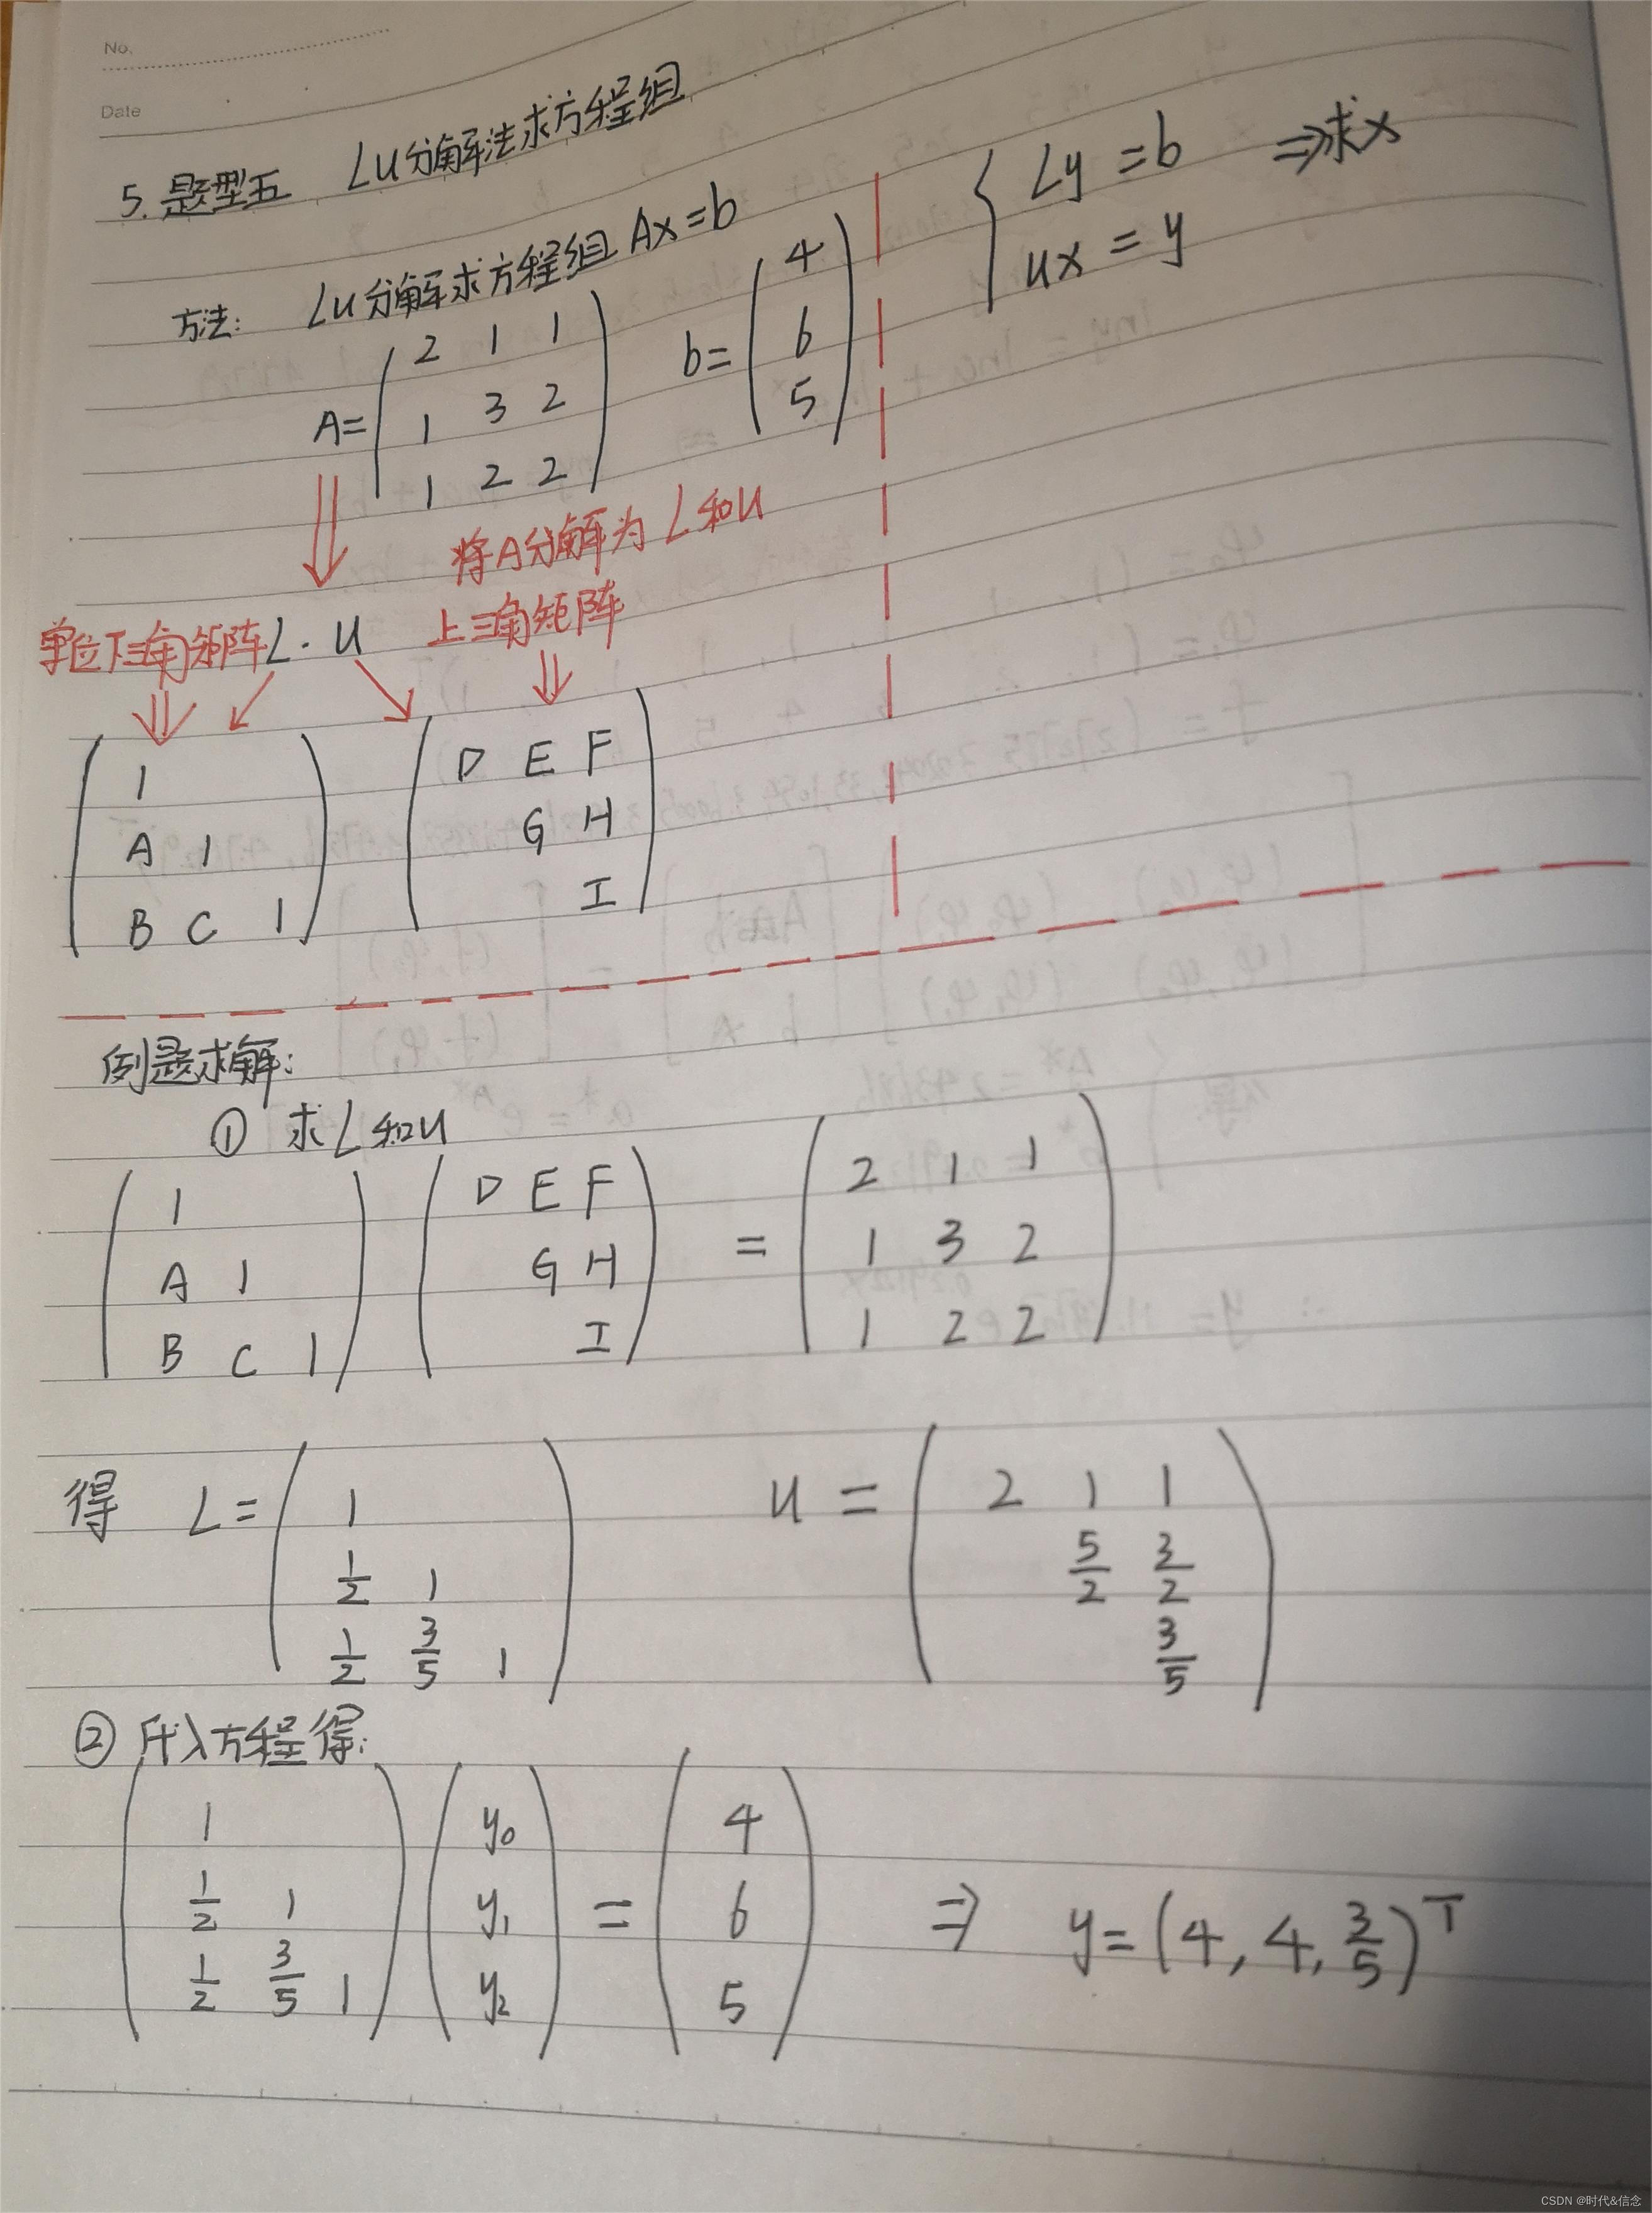 No.
Date
5. 题型五 LU分解法求方程组
方法: LU分解求方程组 Ax=b
A= 2 1 1
1 3 2
1 2 2
b= 4
6
5
Ly=b ⇒求x
ux=y
将A分解为 L和U
单位下三角矩阵 L·U 上三角矩阵
1
A 1
B C 1
D E F
G H
I
例题求解:
① 求L和U
1
A 1
B C 1
D E F
G H
I
=
2 1 1
1 3 2
1 2 2
得 L= 1
1/2 1
1/2 3/5 1
u = 2 1 1
5/2 3/2
3/5
② 代入方程得:
1
1/2 1
1/2 3/5 1
y0
y1
y2
=
4
6
5
⇒ y=(4, 4, 3/5)T
CSDN @时代&信念